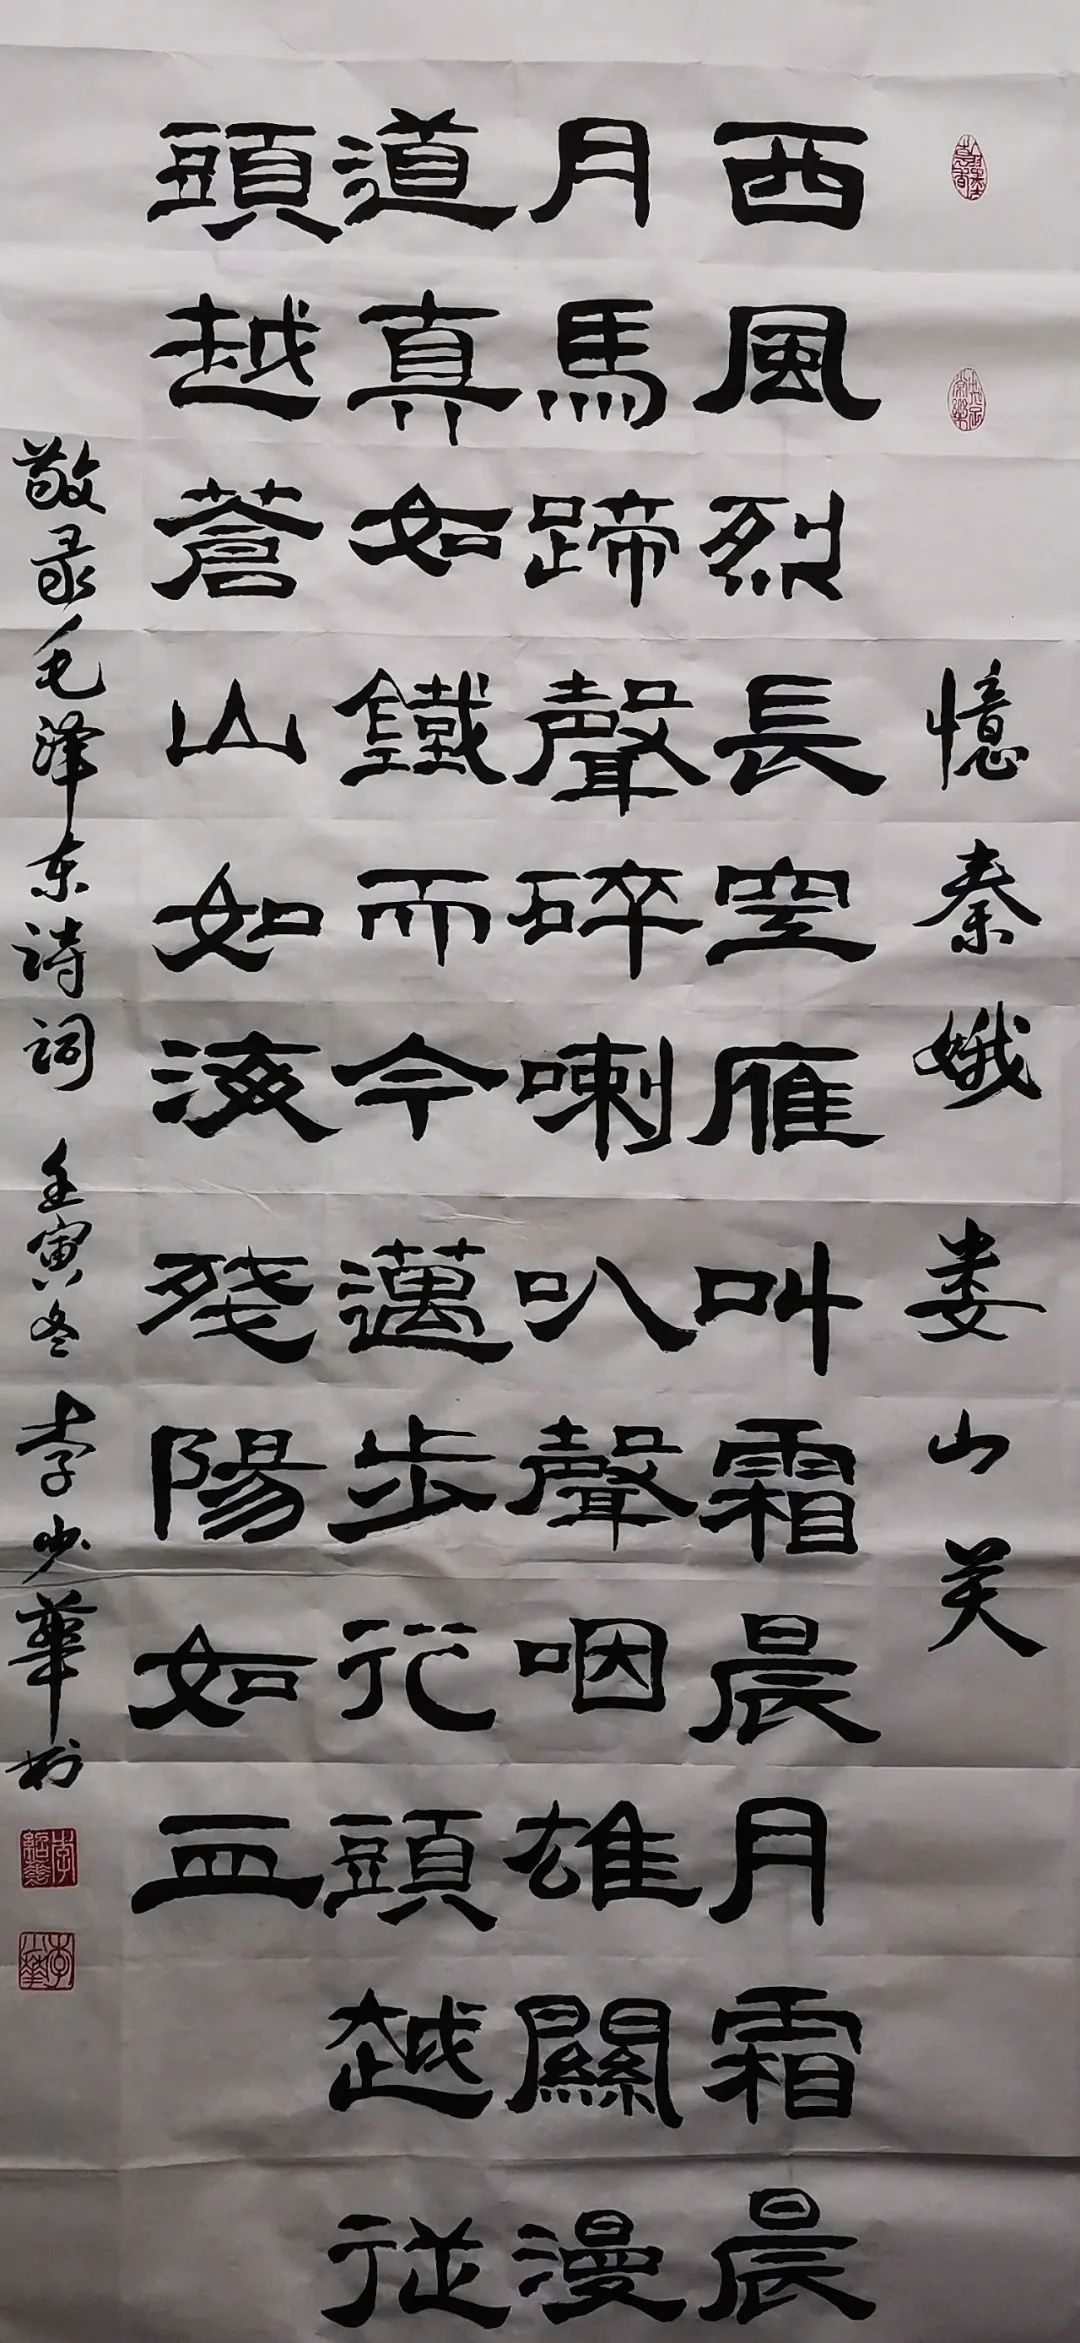 憶秦娥 娄山关
西風烈長空雁叫霜晨月霜晨
月馬蹄聲碎喇叭聲咽雄關漫
道真如鐵而今邁步從頭越從
頭越蒼山如海殘陽如血
敬录毛泽东诗词 壬寅冬 李少華书
李少華